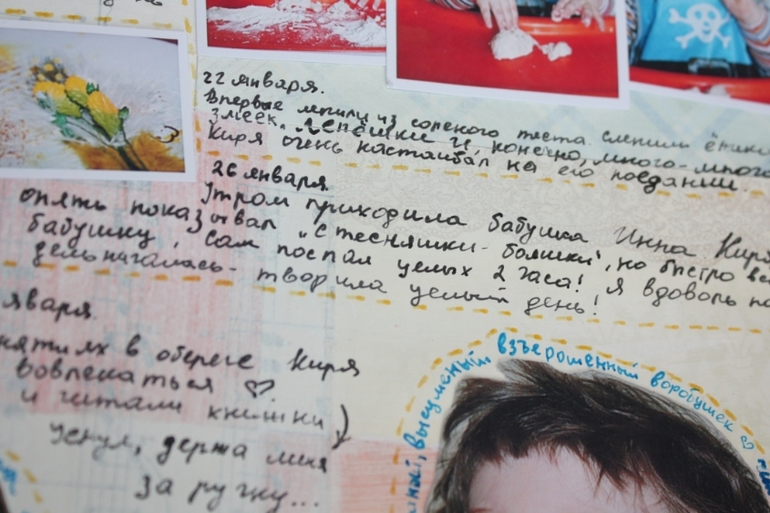 22 января.
Впервые лепили из соленого теста. Слепили ёжика
змеек, лепёшки и, конечно, много-много
Киря очень настаивал на его поедании.
26 января.
Утром приходила бабушка Инна Киря
опять показывал "Стесняшки-бояшки", но быстро
бабушку, сам поспал целых 2 часа! Я вдоволь
дельничалась - творила целый день!
января.
в обереге Киря
вовлекаться ♡
и читали книжки)
Уснул, держа меня
за ручку...
взъерошенный воробушек ♡